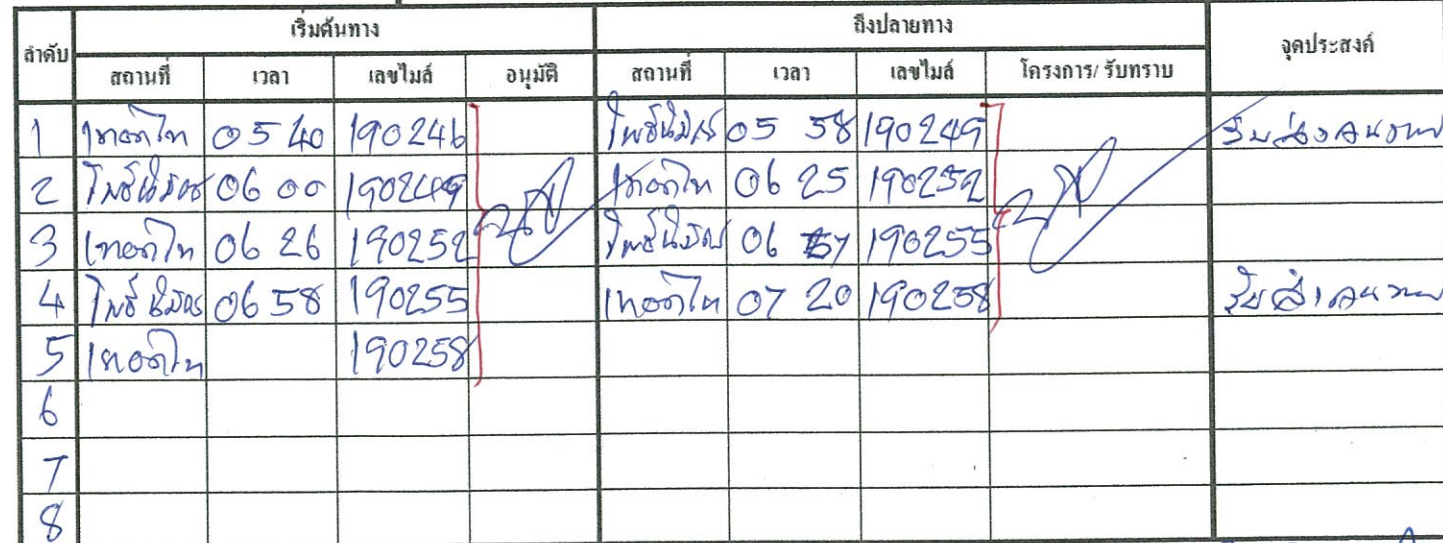 ลำดับ เริ่มต้นทาง ถึงปลายทาง จุดประสงค์
สถานที่ เวลา เลขไมล์ อนุมัติ สถานที่ เวลา เลขไมล์ โครงการ/ รับทราบ
1 เทอดไท 05 40 190246 โพธิ์นิมิตร 05 58 190249 รับส่ง
2 โพธิ์นิมิตร 06 00 190249 เทอดไท 06 25 190252
3 เทอดไท 06 26 190252 โพธิ์นิมิตร 06 57 190255
4 โพธิ์นิมิตร 06 58 190255 เทอดไท 07 20 190258 รับส่ง
5 เทอดไท 190258
6
7
8